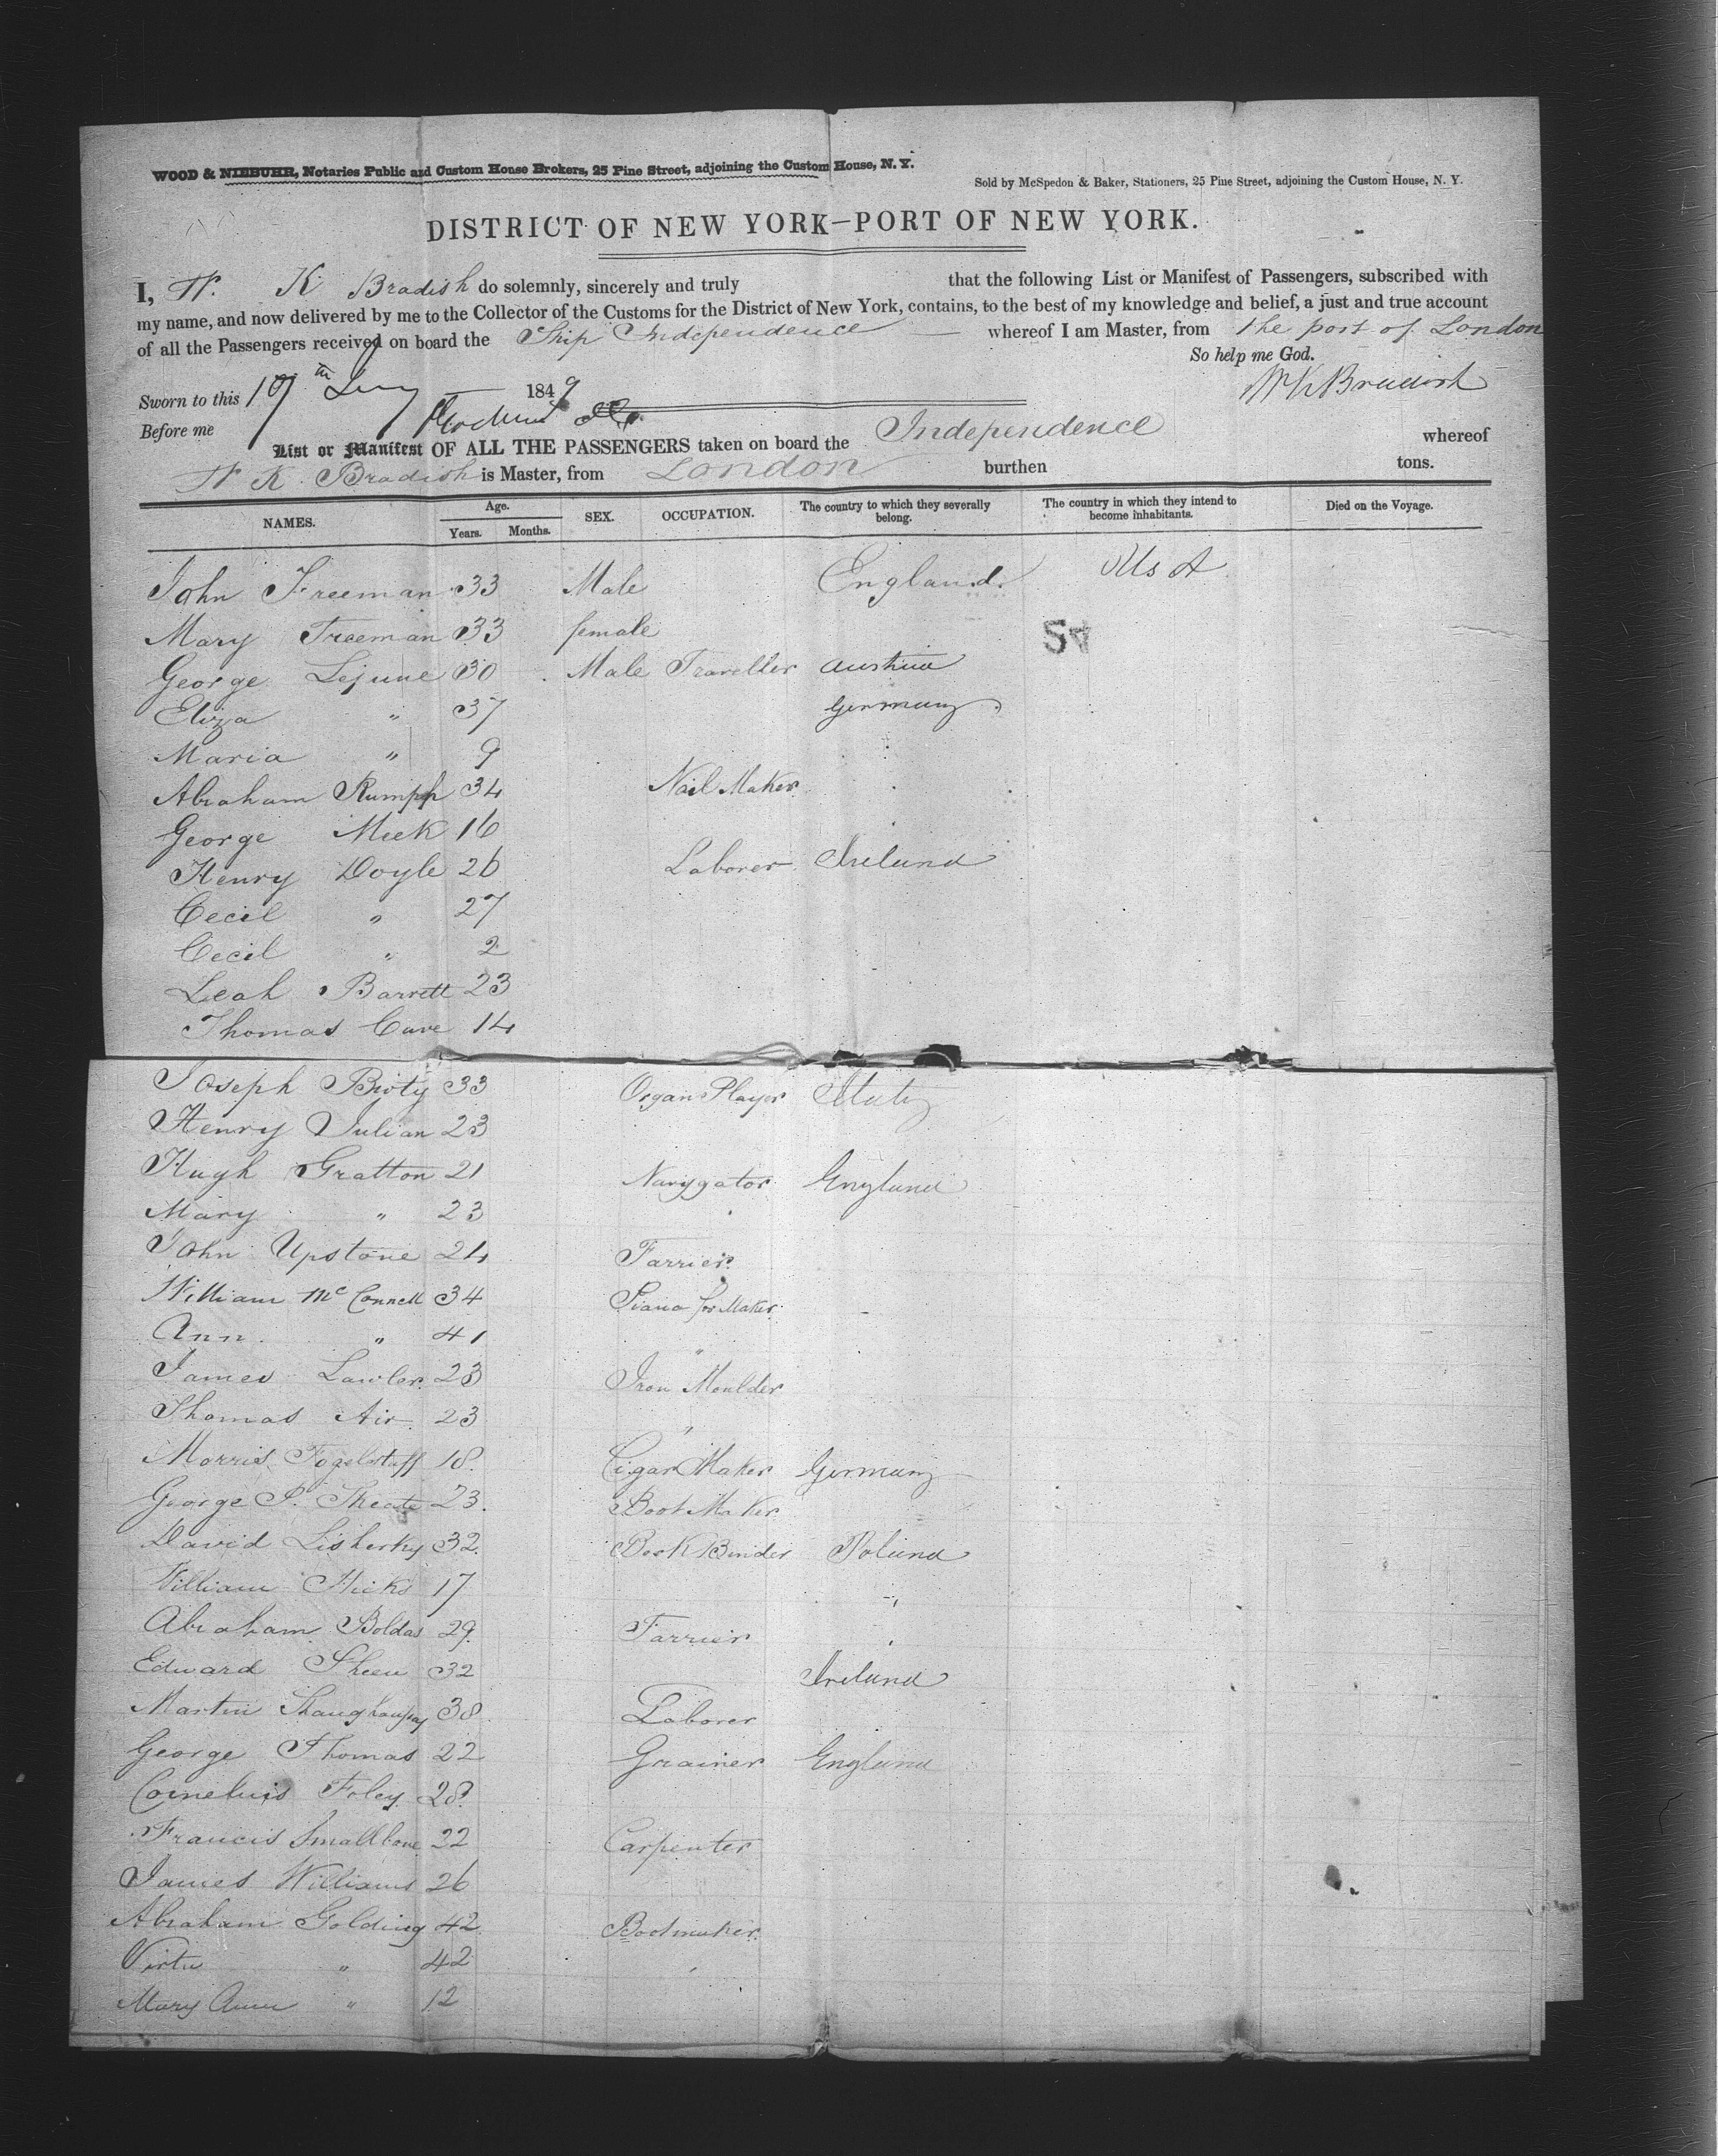 WOOD & NIEBUHR, Notaries Public and Custom House Brokers, 25 Pine Street, adjoining the Custom House, N. Y.
Sold by McSpedon & Baker, Stationers, 25 Pine Street, adjoining the Custom House, N. Y.
DISTRICT OF NEW YORK—PORT OF NEW YORK.
I, W. K Bradish do solemnly, sincerely and truly that the following List or Manifest of Passengers, subscribed with
my name, and now delivered by me to the Collector of the Customs for the District of New York, contains, to the best of my knowledge and belief, a just and true account
of all the Passengers received on board the Ship Independence whereof I am Master, from the port of London
So help me God.
Sworn to this 19th 1849 W K Bradish
Before me
List or Manifest OF ALL THE PASSENGERS taken on board the Independence whereof
W K. Bradish is Master, from London burthen tons.
NAMES. Age. Years. Months. SEX. OCCUPATION. The country to which they severally belong. The country in which they intend to become inhabitants. Died on the Voyage.
John Freeman 33 Male England. Us A
Mary Freeman 33 female
54
George Lejune 30 Male Traveller Austria
Eliza " 37 Germany
Maria " 9
Abraham Rumpp 34 Nail Maker
George Meek 16
Henry Doyle 26 Laborer Ireland
Cecil " 27
Cecil " 2
Leah Barrett 23
Thomas Cave 14
Joseph 33 Organ Player Italy
Henry Julian 23
Hugh Gratton 21 Navygator England
Mary " 23
John Upstone 24 Farrier
William Mc Connell 34 Piano for Maker
Ann " 41 "
James Lawler 23 Iron Moulder
Thomas Air 23 "
Morris Fogelstuff 18 Cigar Maker Germany
George P. Theate 23. Boot Maker
David Lisherky 32 Book Binder Poland
William Hicks 17 "
Abraham Boldas 29 Farrier "
Edward Sheen 32 Ireland
Martin 38 Laborer
George Thomas 22 Grainer England
Cornelius Foley 28
Francis Smallbone 32 Carpenter
James Williams 26
Abraham Golding 42 Bootmaker
Virtu " 42
Mary Ann " 12